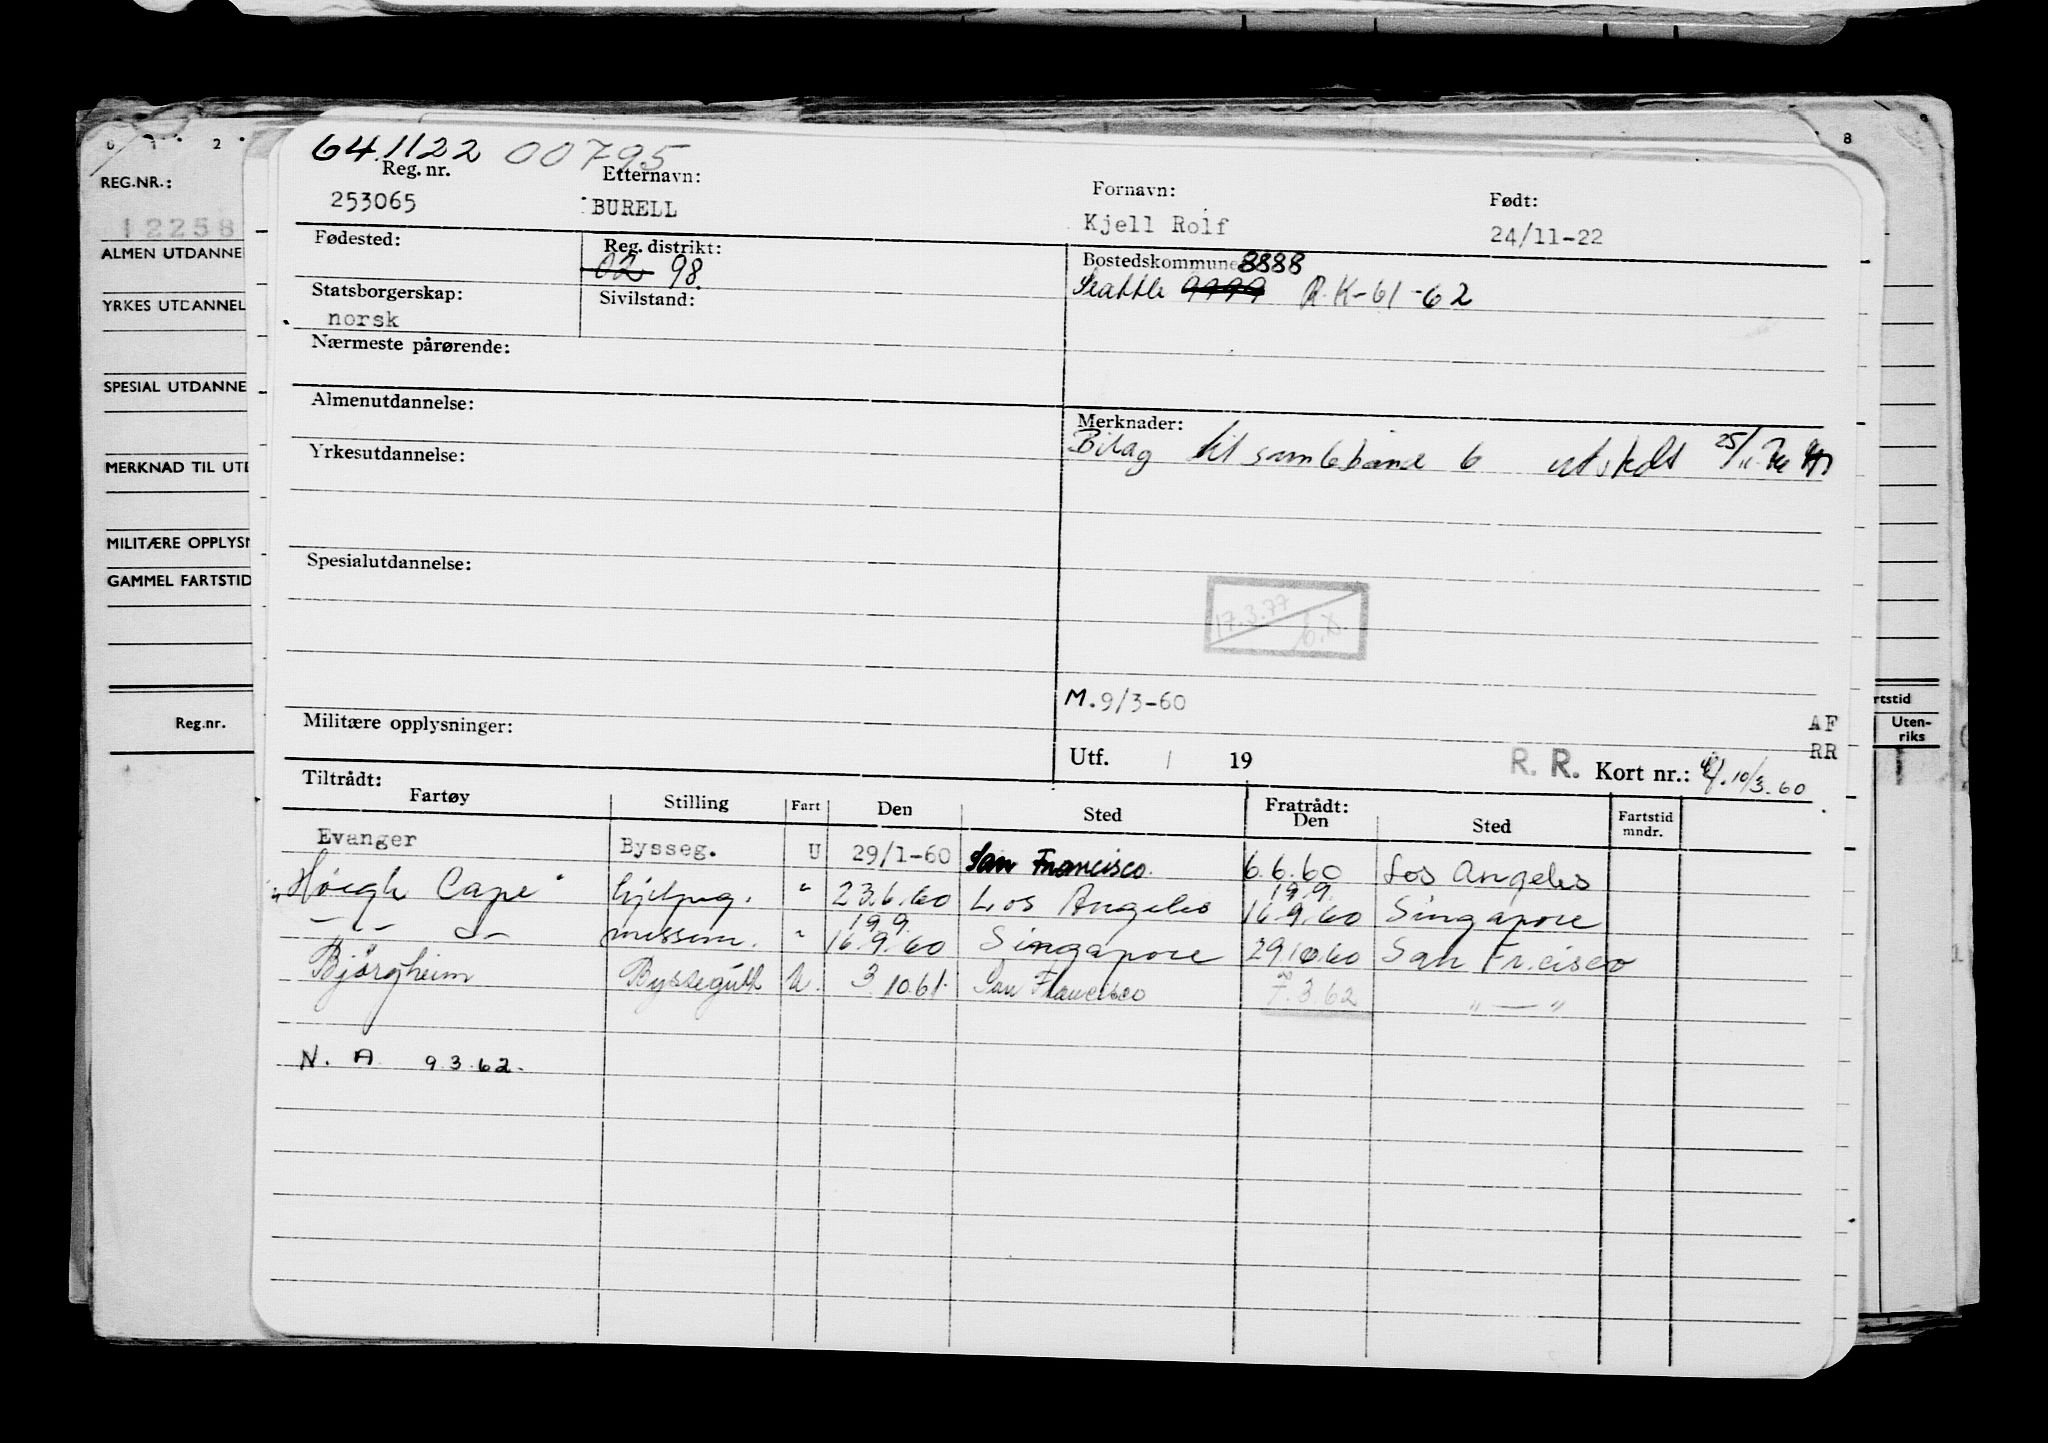 0 1 2
8
REG.NR.:
12258
ALMEN UTDANNE
YRKES UTDANNEL
SPESIAL UTDANNE
MERKNAD TIL UTD
MILITÆRE OPPLYSN
GAMMEL FARTSTID
Reg.nr.
rtstid
Uten-
riks
641122 00795
Reg. nr. Etternavn: Fornavn: Født:
253065 BURELL Kjell Rolf 24/11-22
Fødested: Reg. distrikt: Bostedskommune 8888
02 98. Seattle 9999 R.K-61-62
Statsborgerskap: Sivilstand:
norsk
Nærmeste pårørende:
Almenutdannelse: Merknader:
Bilag til samleband 6 utstedt 25/11
Yrkesutdannelse:
Spesialutdannelse:
17.3.77
M.9/3-60
Militære opplysninger: AF
Utf. / 19 R. R. Kort nr.: 10/3.60 RR
Tiltrådt: Fratrådt:
Fartøy Stilling Fart Den Sted Den Sted Fartstid mndr.
Evanger Bysseg. U 29/1-60 San Francisco. 6.6.60 Los Angeles
"Høegh Cape" hjelpeg. " 23.6.60 Los Angeles 16.9.60 19.9. Singapore
messem. " 16.9.60 19.9. Singapore 29.10.60 San Fr.cisco
Bjørgheim Byssegutt U. 3.10.61. San Francisco 7.3.62 " — "
N. A 9.3.62.